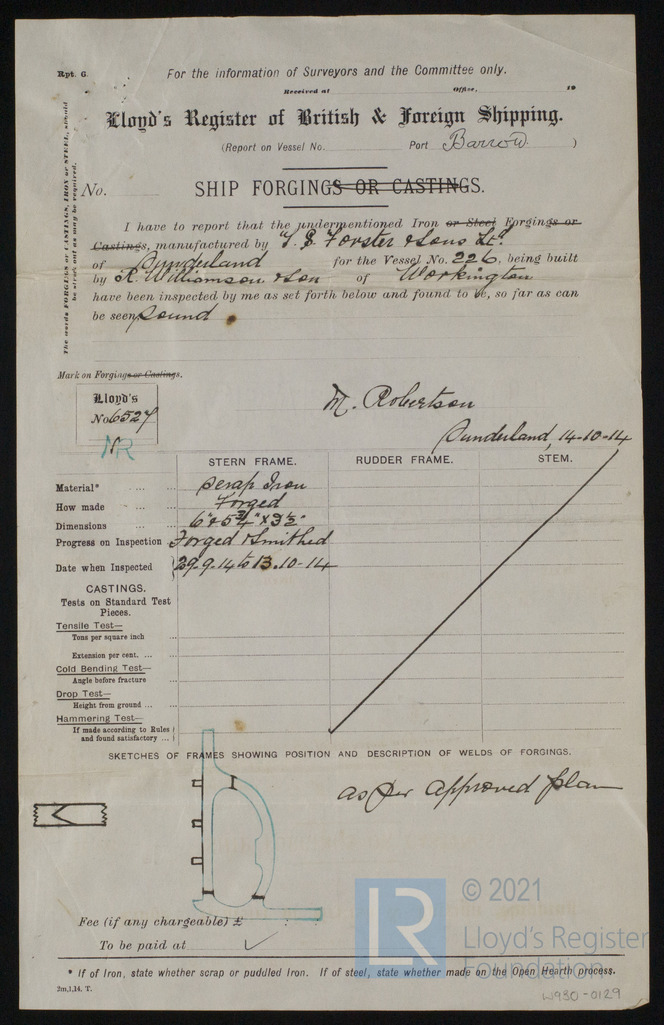 Rpt. 6.
For the information of Surveyors and the Committee only.
Received at Office, 19
Lloyd's Register of British & Foreign Shipping.
(Report on Vessel No. Port Barrow )
No. SHIP FORGINGS OR CASTINGS.
The words FORGINGS or CASTINGS, IRON or STEEL, should be struck out as may be required.
I have to report that the undermentioned Iron or Steel Forgings or
Castings, manufactured by T. S. Forster & Sons Ld.
of Sunderland for the Vessel No. 226, being built
by R. Williamson & Son of Workington
have been inspected by me as set forth below and found to be, so far as can
be seen, sound
Mark on Forgings or Castings.
Lloyd's
No 6527
MR
M. Robertson
Sunderland, 14-10-14
STERN FRAME. RUDDER FRAME. STEM.
Material* ... ... Scrap Iron
How made ... ... Forged
Dimensions ... ... 6" & 5¾" x 3½"
Progress on Inspection Forged & Smithed
Date when Inspected 29.9.14 to 13.10-14
CASTINGS.
Tests on Standard Test
Pieces.
Tensile Test—
Tons per square inch ...
Extension per cent. ... ...
Cold Bending Test—
Angle before fracture ...
Drop Test—
Height from ground ... ...
Hammering Test—
If made according to Rules
and found satisfactory ... ...
SKETCHES OF FRAMES SHOWING POSITION AND DESCRIPTION OF WELDS OF FORGINGS.
as per approved plan
Fee (if any chargeable) £ : :
To be paid at
* If of Iron, state whether scrap or puddled Iron. If of steel, state whether made on the Open Hearth process.
2m,1,14. T.
LR
© 2021
Lloyd's Register
Foundation
W930-0129